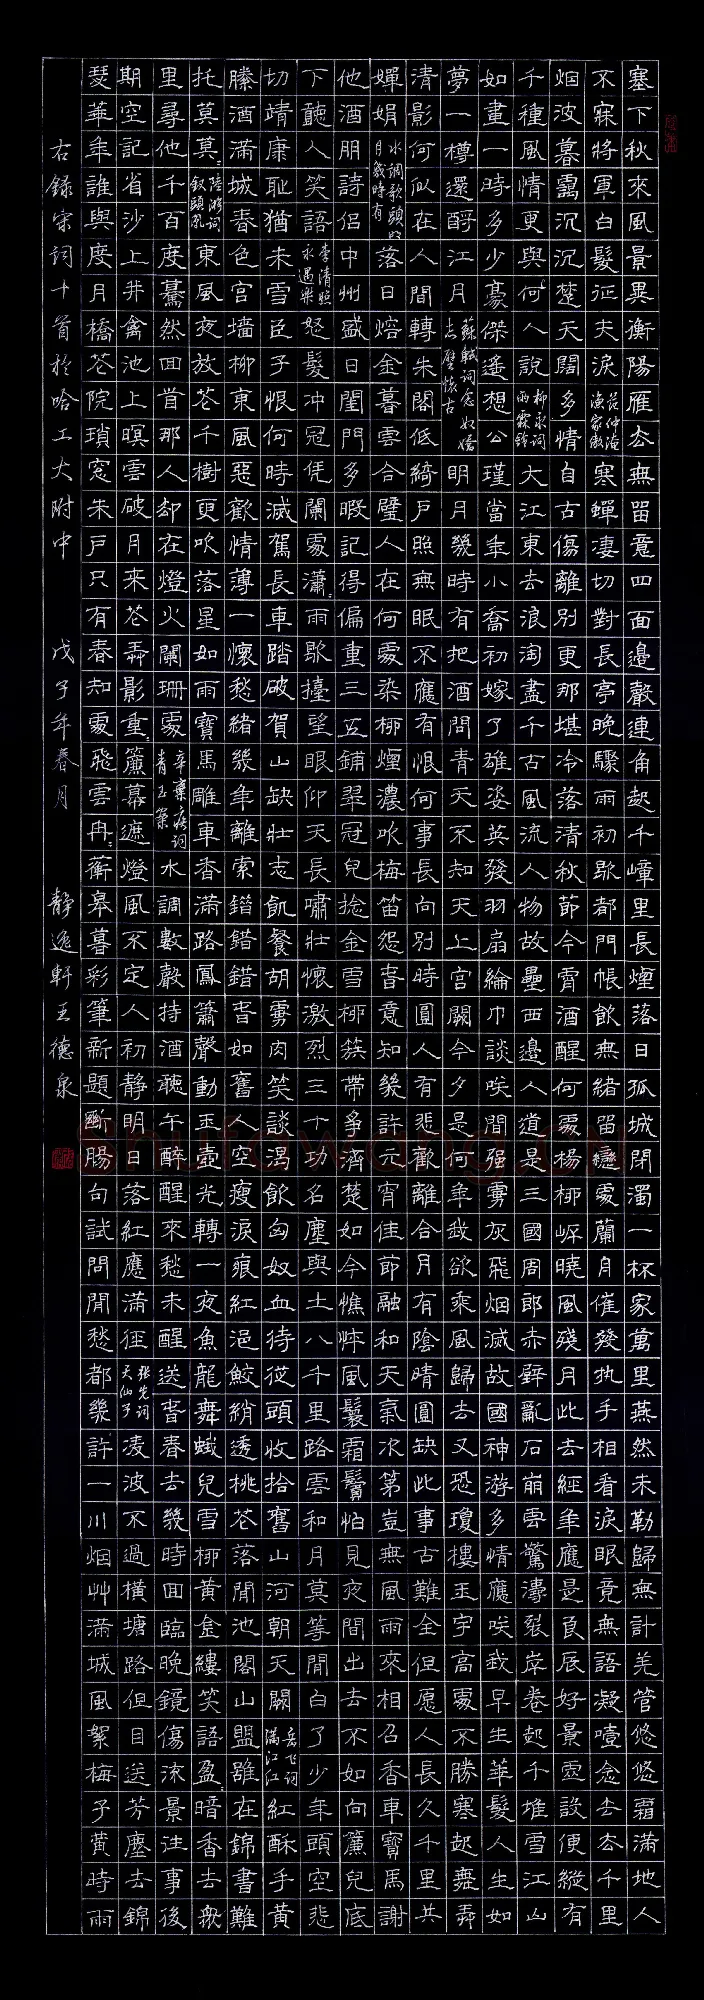 塞下秋來風景異衡陽雁去無留意四面邊聲連角起千嶂里長煙落日孤城閉濁一杯家萬里燕然未勒歸無計羌管悠悠霜滿地人
不寐將軍白髮征夫淚范仲淹漁家傲寒蟬凄切對長亭晚驟雨初歇都門帳飲無緒留戀處蘭舟催發执手相看淚眼竟無語凝噎念去去千里
烟波暮靄沉沉楚天闊多情自古傷離別更那堪冷落清秋節今宵酒醒何處楊柳岸曉風殘月此去經年應是良辰好景虛設便縱有
千種風情更與何人說柳永詞雨霖鈴大江東去浪淘盡千古風流人物故壘西邊人道是三國周郎赤壁亂石崩雲驚濤裂岸卷起千堆雪江山
如畫一時多少豪傑遙想公瑾當年小喬初嫁了雄姿英發羽扇綸巾談笑間强虜灰飛烟滅故國神游多情應笑我早生華髮人生如
夢一樽還酹江月蘇軾詞念奴嬌赤壁懷古明月幾時有把酒問青天不知天上宮闕今夕是何年我欲乘風歸去又恐瓊樓玉宇高處不勝寒起舞弄
清影何似在人間轉朱閣低綺戶照無眠不應有恨何事長向別時圓人有悲歡離合月有陰晴圓缺此事古難全但愿人長久千里共
嬋娟水調歌頭明月幾時有落日熔金暮雲合璧人在何處染柳煙濃吹梅笛怨春意知幾許元宵佳節融和天氣次第豈無風雨來相召香車寶馬謝
他酒朋詩侶中州盛日閨門多暇記得偏重三五鋪翠冠兒捻金雪柳簇帶爭濟楚如今憔悴風鬟霜鬢怕見夜間出去不如向簾兒底
下聽人笑語李清照永遇樂怒髮冲冠凭闌處瀟=雨歇擡望眼仰天長嘯壯懷激烈三十功名塵與土八千里路雲和月莫等閒白了少年頭空悲
切靖康耻猶未雪臣子恨何時滅駕長車踏破賀山缺壯志飢餐胡虜肉笑談渴飲匈奴血待從頭收拾舊山河朝天闕岳飞詞滿江红紅酥手黃
滕酒滿城春色宮墻柳東風惡歡情薄一懷愁緒幾年離索錯錯錯春如舊人空瘦淚痕紅浥鮫綃透桃花落閒池閣山盟雖在錦書難
托莫莫=陸游詞釵頭鳳東風夜放花千樹更吹落星如雨寶馬雕車香滿路鳳簫聲動玉壺光轉一夜魚龍舞蛾兒雪柳黃金縷笑語盈暗香去衆
里尋他千百度驀然回首那人却在燈火闌珊處辛棄疾詞青玉案水調數聲持酒聽午醉醒來愁未醒送春春去幾時回臨晚鏡傷流景往事後
期空記省沙上并禽池上暝雲破月来花弄影重=簾幕遮燈風不定人初静明日落紅應滿徑張先詞天仙子凌波不過橫塘路但目送芳塵去錦
瑟華年誰與度月橋花院瑣窓朱戶只有春知處飛雲冉=蘅皋暮彩筆新題斷腸句試問閒愁都幾許一川烟艸滿城風絮梅子黃時雨
右錄宋詞十首於哈工大附中 戊子年春月 静逸軒王德泉
shufawang.cn